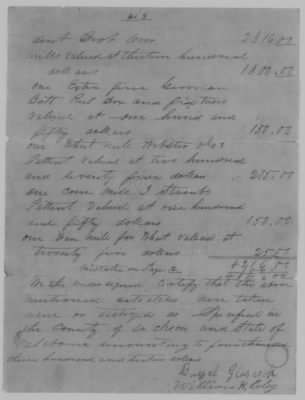 No 2
amt Brot Over 2316.00
Mills Valued at thirteen hundred
dollars 1300.00
one Extra fine German
Bolt Reel Box and fixtures
Valued at one hundred and
fifty dollars 150.00
one Wheat mill
Pattent Valued at two hundred
and Seventy five dollars 275.00
one corn mill J Straubs
Pattent Valued at one hundred
and fifty dollars 150.00
one Fan Mill for Wheat Valued at
twenty five dollars 25.00
mistake on Page
We the undersigned Certify that the above
mentioned articles were taken
used or destroyed as Specified in
the County of Jackson and State of
Alabama amounting to
hundred and dollars
William H.